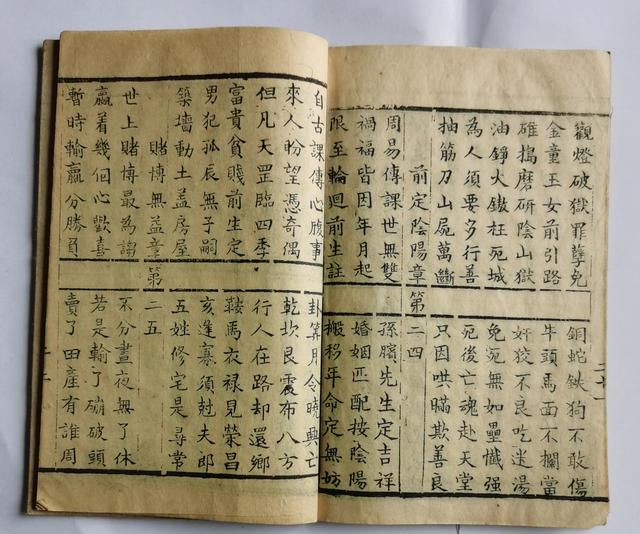 觀燈破獄罪孽免 銅蛇鉄狗不敢傷
金童玉女前引路 牛頭馬面不攔當
碓搗磨研陰山獄 奸狡不良吃迷湯
油錚火枉死城 免寃無如壘懺强
為人須要多行善 死後亡魂赴天堂
抽筋刀山屍萬斷 只因哄瞞欺善良
前定陰陽章 第二四
周易傳課世無雙 孫臏先生定吉祥
禍福皆因年月起 婚姻匹配按陰陽
限至輪迴前生註 搬移年命定無妨
自古課傳心腹事 卦算月令曉興亡
來人盼望憑奇偶 乾坎艮震布八方
但凡天罡臨四季 行人在路却還鄉
富貴貧賤前生定 鞍馬衣祿見榮昌
男犯孤辰無子嗣 亥逢寡須尅夫郎
築墻動土盖房屋 五姓修宅是尋常
賭博無益章 第二五
世上賭博最為謅 不分晝夜無了休
贏着幾個心歡喜 若是輸了磞破頭
暫時輸贏分勝負 賣了田產有誰周